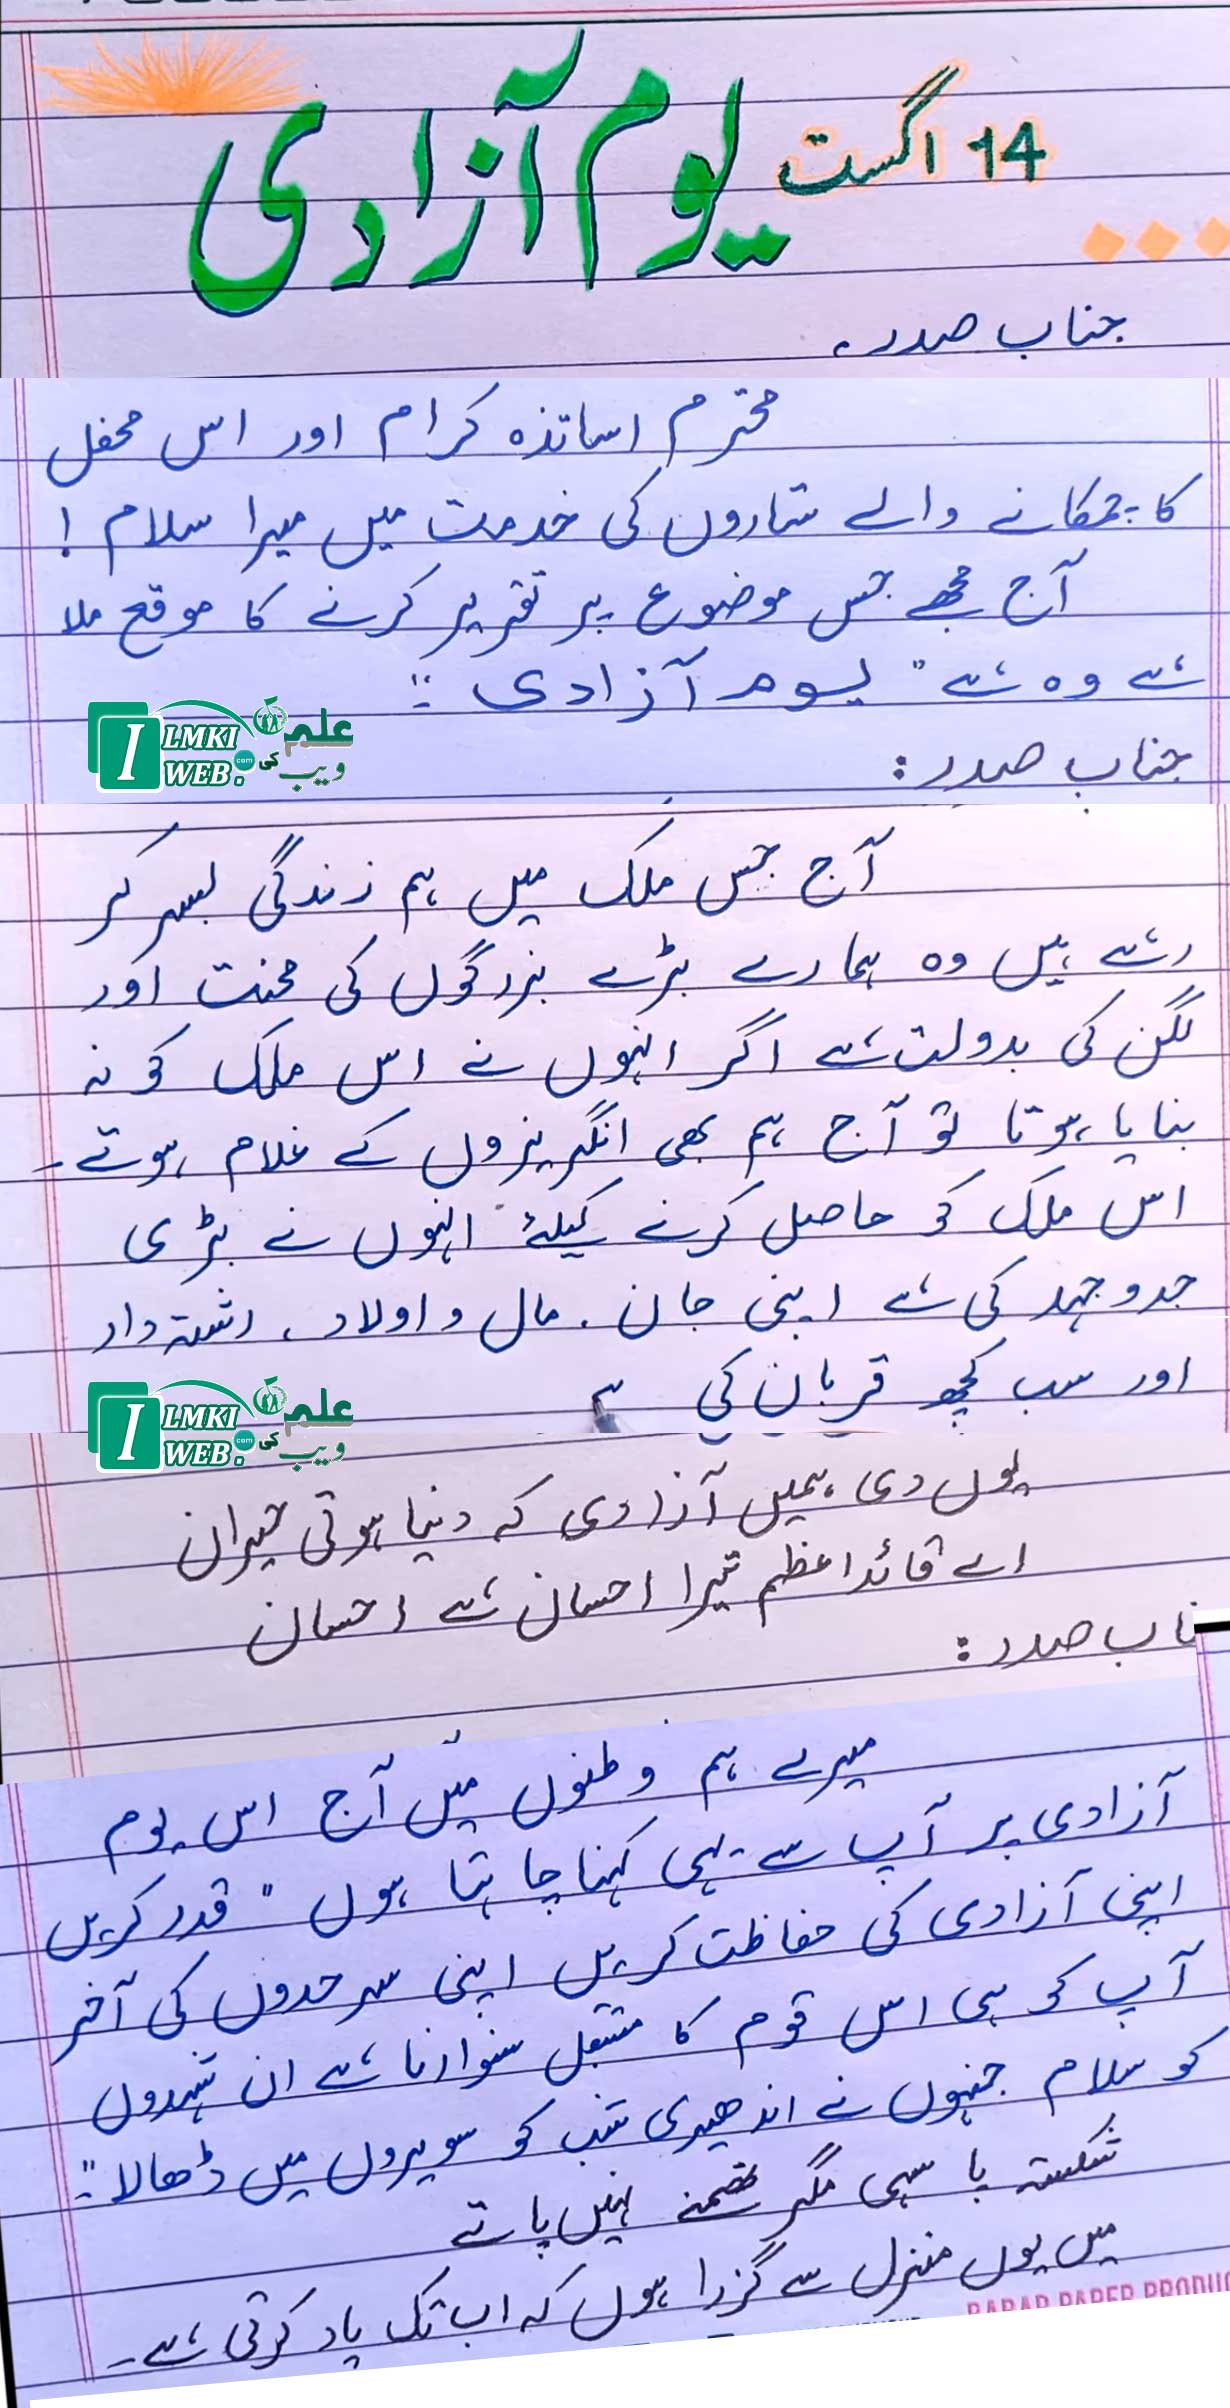 14 اگست یوم آزادی
جناب صدر،
محترم اساتذہ کرام اور اس محفل
کا چمکانے والے ستاروں کی خدمت میں میرا سلام !
آج مجھے جس موضوع پر تقریر کرنے کا موقع ملا
ہے وہ ہے " یوم آزادی "۔
جناب صدر :
ILMKI
WEB.com
علم کی ویب
آج جس ملک میں ہم زندگی بسر کر
رہے ہیں وہ ہمارے بڑے بزرگوں کی محنت اور
لگن کی بدولت ہے اگر انہوں نے اس ملک کو نہ
بنایا ہوتا تو آج ہم بھی انگریزوں کے غلام ہوتے۔
اس ملک کو حاصل کرنے کیلئے انہوں نے بڑی
جدوجہد کی ہے اپنی جان ، مال و اولاد ، رشتہ دار
اور سب کچھ قربان کی
ILMKI
WEB.com
علم کی ویب
یوں دی ہمیں آزادی کہ دنیا ہوئی حیران
اے قائداعظم تیرا احسان ہے احسان
ناب صدر :
میرے ہم وطنوں میں آج اس یوم
آزادی پر آپ سے یہی کہنا چاہتا ہوں " قدر کریں
اپنی آزادی کی حفاظت کریں اپنی سرحدوں کی آخر
آپ کو ہی اس قوم کا مستقبل سنوارنا ہے ان شہدوں
کو سلام جنہوں نے اندھیری شب کو سویروں میں ڈھالا "۔
شکستہ پا سہی مگر تھمنے نہیں پاتے
میں یوں منزل سے گزرا ہوں کہ اب تک یاد کرتی ہے۔
BABAR PAPER PRODUC